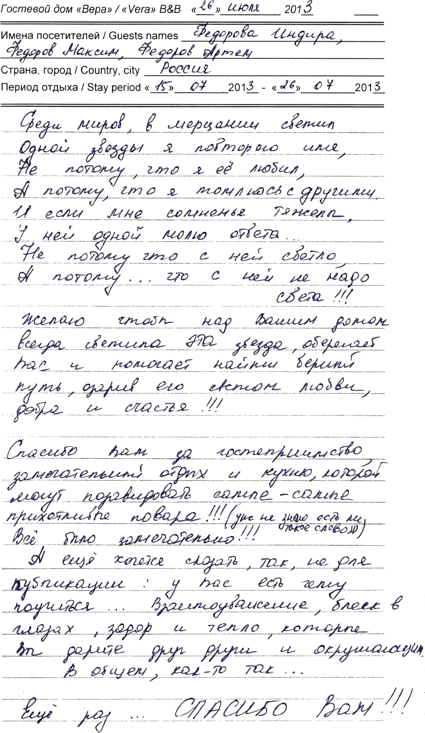 Гостевой дом «Вера» / «Vera» B&B « 26 » июля 2013
Имена посетителей / Guests names Федорова Индира,
Федоров Максим, Федоров Артем
Страна, город / Country, city Россия
Период отдыха / Stay period « 15 » 07 2013 - « 26 » 07 2013
Среди миров, в мерцании светил
Одной звезды я повторяю имя,
Не потому, что я её любил,
А потому, что я томлюсь с другими.
И если мне сомненье тяжело,
У ней одной молю ответа...
Не потому что с ней светло,
А потому... что с ней не надо
света!!!
Желаю чтобы над Вашим домом
всегда светила эта звезда, оберегает
Вас и помогает найти верный
путь, озарив его светом любви,
добра и счастья!!!
Спасибо Вам за гостеприимство,
замечательный отдых и кухню, которой
могут позавидовать самые-самые
прихотливые повара!!! (уже не знаю есть ли
такое слово)
Всё было замечательно!!!
А ещё хочется сказать, так, не для
публикации: у Вас есть чему
поучится... Взаимоуважение, блеск в
глазах, задор и тепло, которые
Вы дарите друг другу и окружающим.
В общем, как-то так...
Ещё раз... СПАСИБО Вам!!!